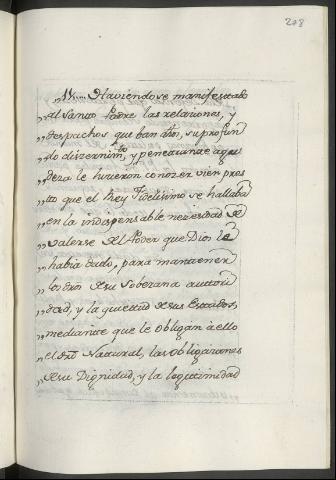 278
„ 14.... Haviendose manifestado
„ al Santo Padre las relaciones, y
„ despachos que van dhos, su profun
„ do diszernim.to y penetrante agu
„ deza le hicieron conozer vien pres
„ to que el Rey Fidelisimo se hallaba
„ en la indispensable nezesidad de
„ valerse del Poder que Dios le
„ habia dado, para mantener
„ los dros de su Soberana autori
„ dad, y la quietud de sus Estados,
„ mediante que le obligan a ello
„ el dro Natural, las obligaziones
„ de su Dignidad, y la legitimidad